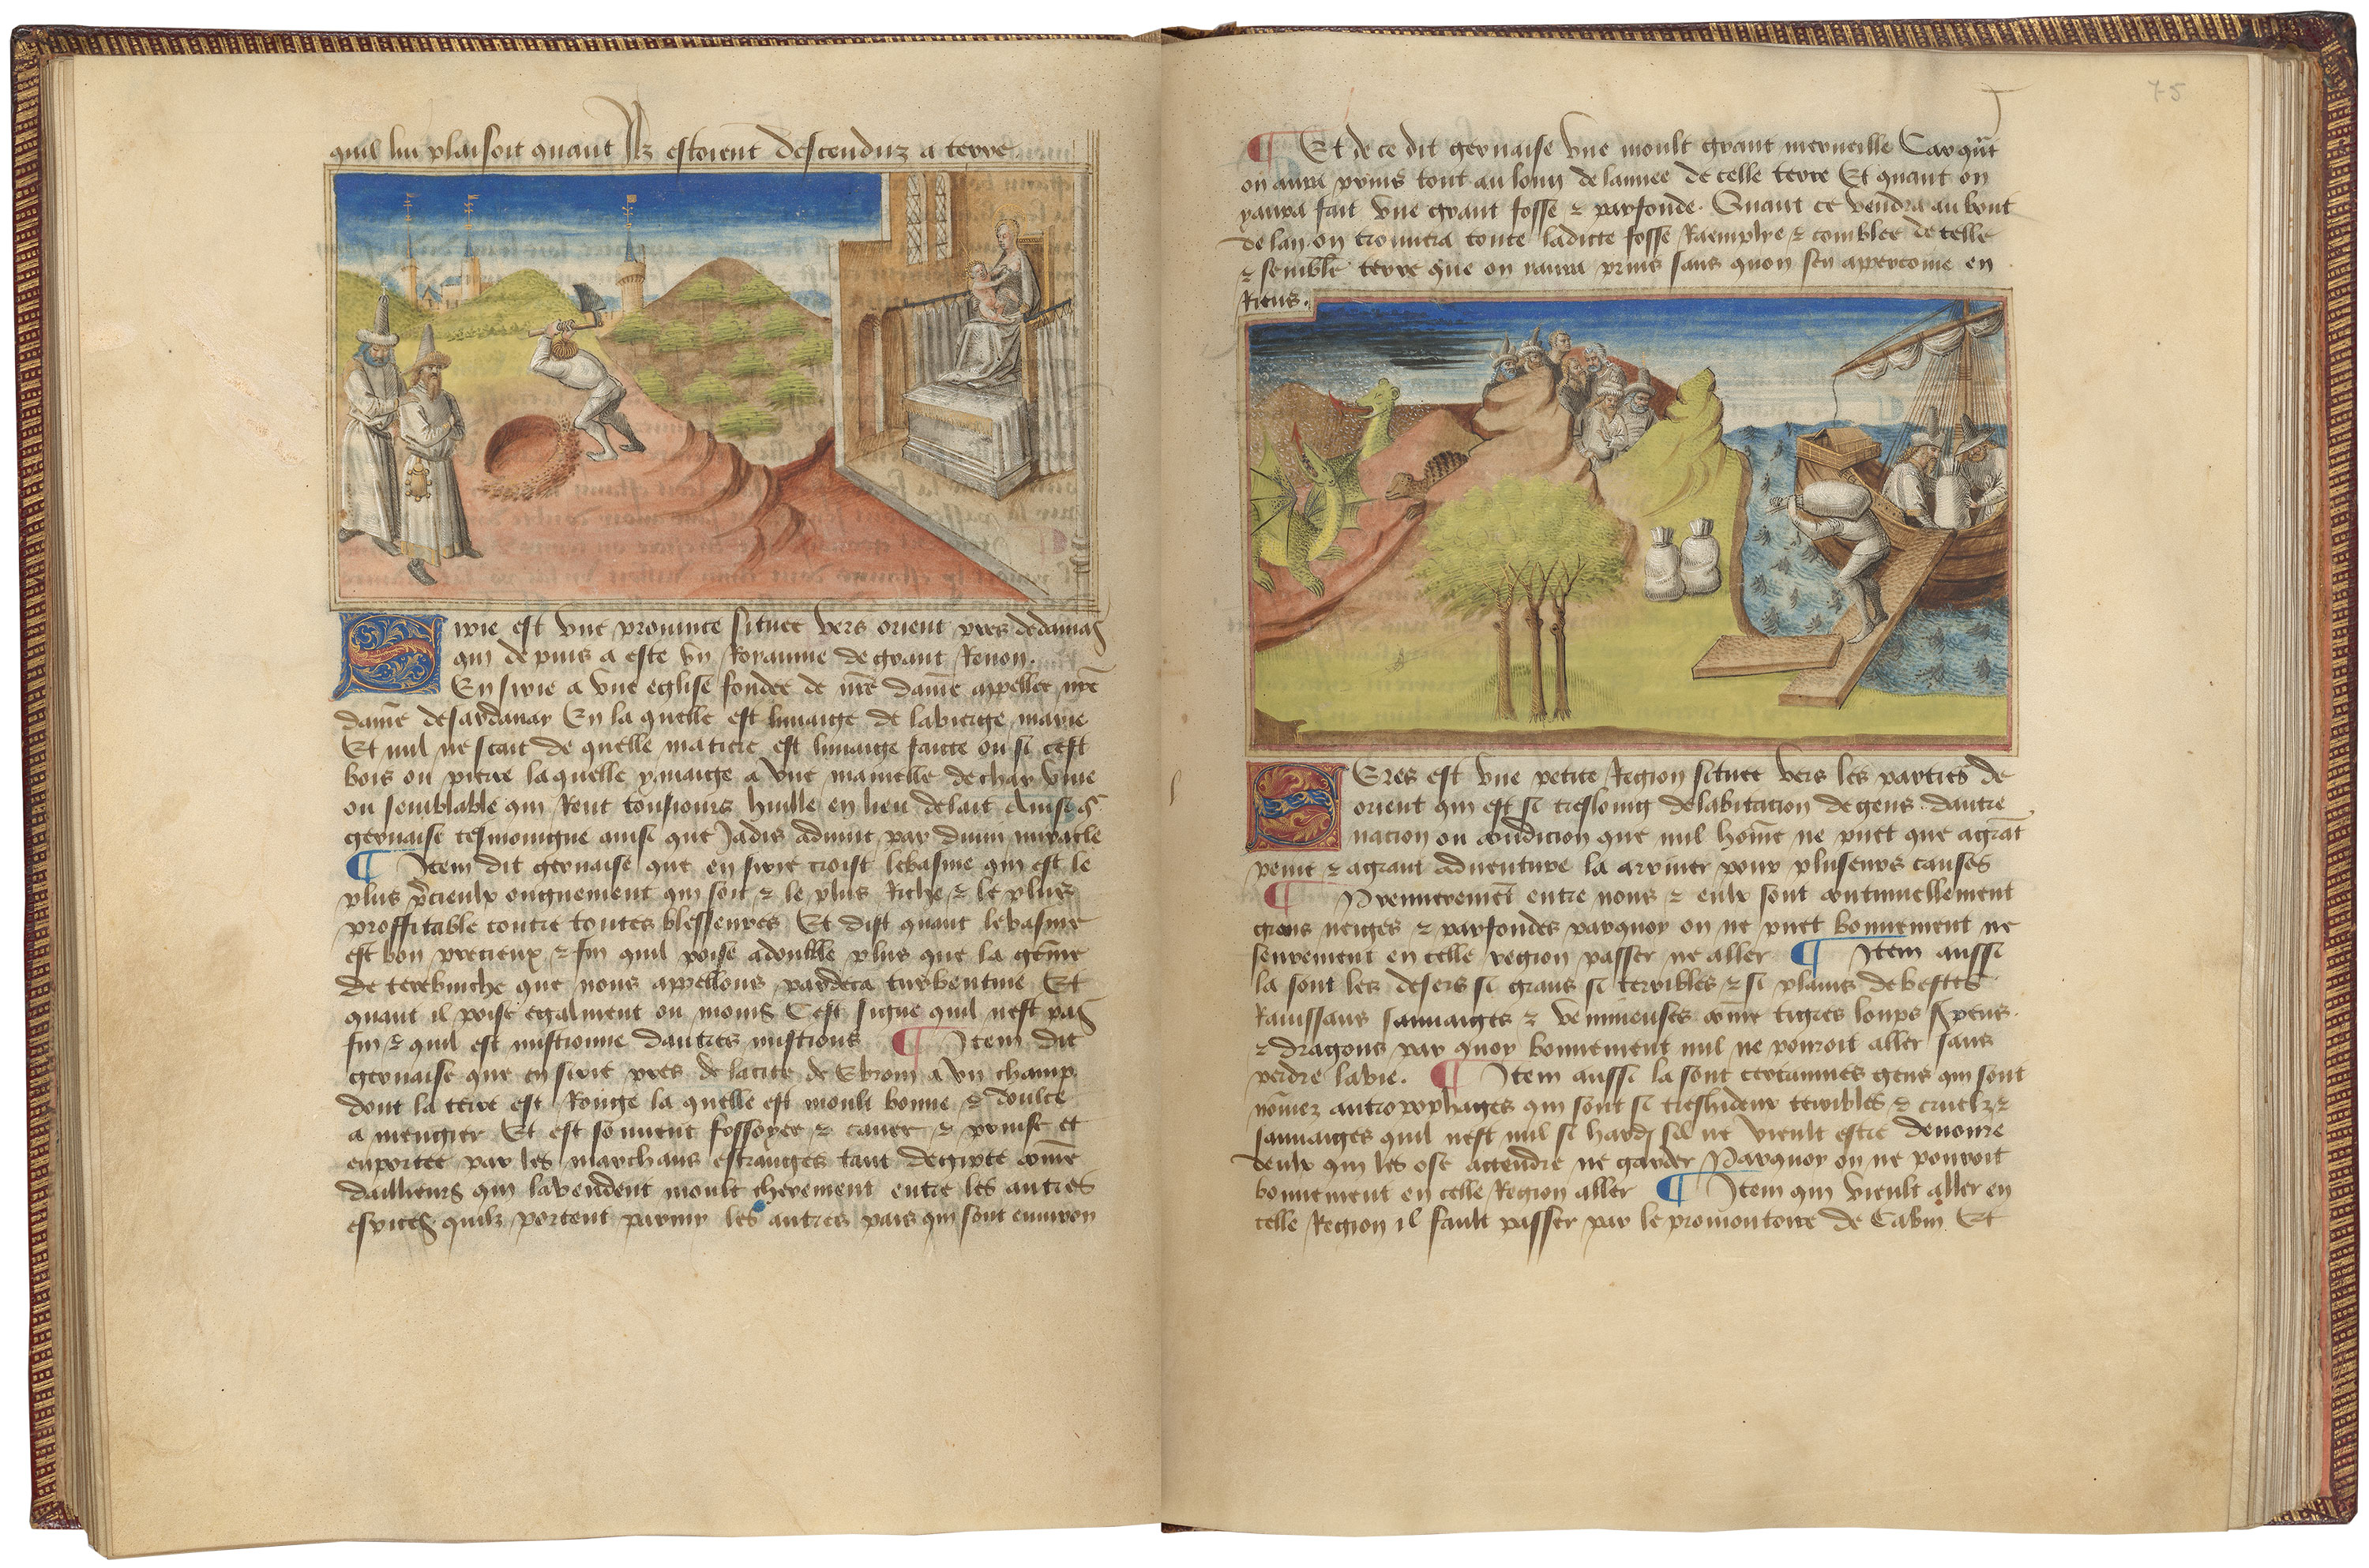 quil lui plaisoit quant Ilz estoient descenduz a terre
Sirie est vne prouince situee vers orient pres de damas
qui depuis a este vn Royaume de grant Renon.
En sirie a vne eglise fondee de nr̄e dame appellee nr̄e
dame de sardanay En la quelle est limaige de la vierge marie
Et nul ne scait de quelle matiere est limaige faicte ou si cest
bois ou pierre la quelle ymaige a vne mamelle de char viue
ou semblable qui Rent tousiours huille en lieu de lait Ainsi q̄
geruaise tesmoingne ainsi que Jadis aduint par diuin miracle
¶ Item dit geruaise que en sirie croist le basme qui est le
plus p̄cieulx oignement qui soit ⁊ le plus Riche ⁊ le plus
proffitable contre toutes blesseures Et dist quant le basme
est bon precieux ⁊ fin quil poise a double plus que la gōme
de terebinche que nous appellons par deca turbentine Et
quant il poise egalment ou moins Cest signe quil nest pas
fin ⁊ quil est mistionne dautres mistions ¶ Item dit
geruaise que en sirie pres de la cite de Ebron a vn champ
dont la terre est Rouge la quelle est moult bonne ⁊ doulce
a mengier Et est souuent fossoyee ⁊ cauee ⁊ prinse et
emportee par les marchans estranges tant degipte cōme
dailleurs qui la vendent moult chierement entre les autres
espices quilz portent parmy les autres pais qui sont enuiron
75
¶ Et de ce dit geruaise vne moult grant merueille Car q̄nt
on aura prins tout au long de lannee de celle terre Et quant on
y aura fait vne grant fosse ⁊ parfonde. Quant ce vendra au bout
de lan on trouuera toute ladicte fosse Raemplye ⁊ comblee de telle
⁊ semble terre que on naura prins sans quon sen apercoiue en
Riens.
Seres est vne petite Region situee vers les parties de
orient qui est si tresloing de labitacion de gens dautre
nacion ou condicion que nul hōme ne puet que a grāt
peine ⁊ a grant aduenture la arriuer pour pluseurs causes
¶ Premieremēt entre nous ⁊ eulx sont continuellement
grans neiges ⁊ parfondes parquoy on ne puet bonnement ne
seurement en celle region passer ne aller ¶ Item aussi
la sont les desers si grans si terribles ⁊ si plains de bestes
Rauissans sauuaiges ⁊ venimeuses cōme tigres loups s̄pens.
⁊ dragons par quoy bonnement nul ne pouroit aller sans
perdre la vie. ¶ Item aussi la sont certaines gens qui sont
nōmez antropophages qui sont si treshideux terribles ⁊ cruelz ⁊
sauuaiges quil nest nul si hardi sil ne vieult estre deuoure
deulx qui les ose attendre ne garder Parquoy on ne pouroit
bonnement en celle Region aller ¶ Item qui vieult aller en
celle Region il fault passer par le promontoire de Cabin Et